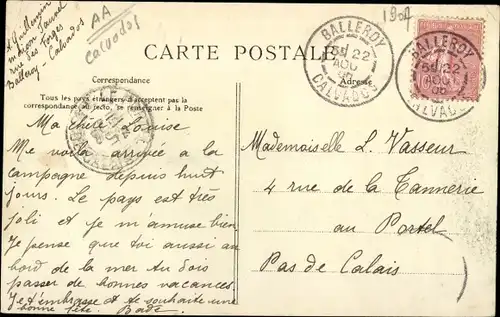 1907
AA
Calvados
A Guillemin
maison Jaunel
rue des Forges
Balleroy - Calvados
CARTE POSTALE
Correspondance
Adresse
Tous les pays étrangers n'acceptent pas la
correspondance au recto, se renseigner à la Poste
BALLEROY
22
AOU
06
CALVADOS
BALLEROY
22
AOU
06
CALVADOS
Ma chère Louise
Me voilà arrivée a la
campagne depuis huit
jours. Le pays est très
joli et je m'amuse bien
Je pense que toi aussi au
bord de la mer tu dois
passer de bonnes vacances
Je t'embrasse et te souhaite une
bonne fête.
Mademoiselle L. Vasseur
4 rue de la Tannerie
au Portel
Pas de Calais